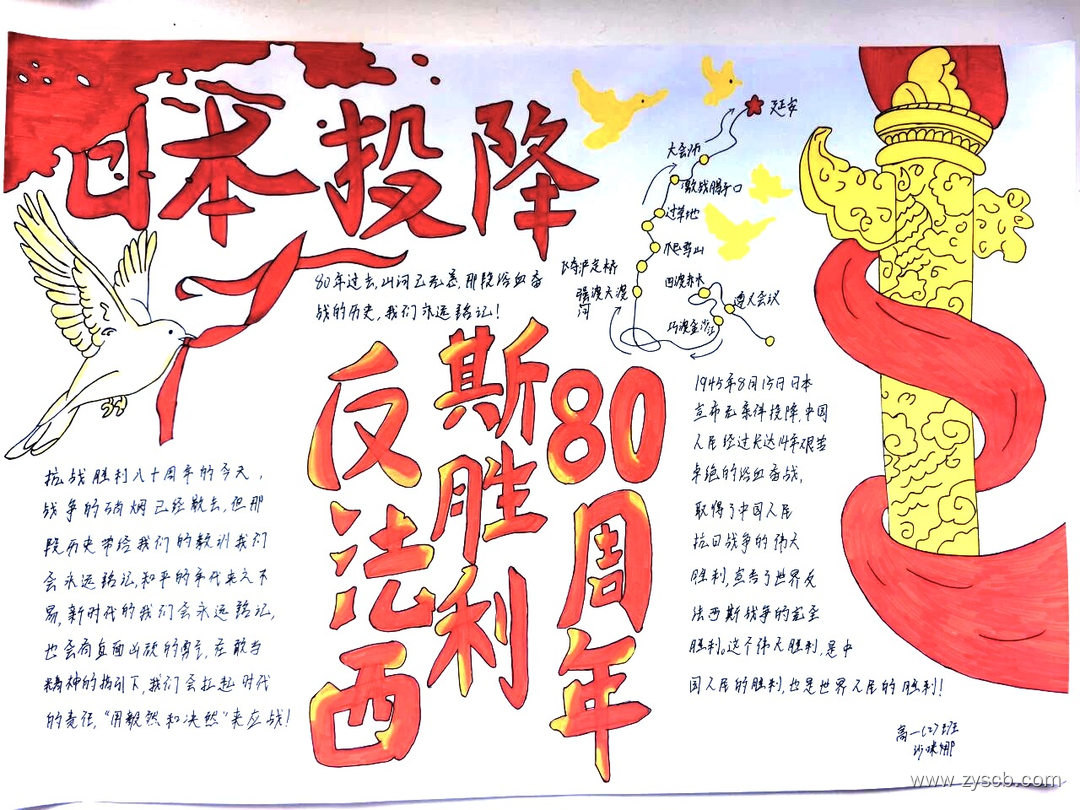 日本投降
80年过去,山河已无恙,那段浴血奋
战的历史,我们永远铭记!
延安
大会师
激战腊子口
过草地
爬雪山
飞夺泸定桥
强渡大渡
河
四渡赤水
遵义会议
巧渡金沙江
反法西
斯胜利
80周年
抗战胜利八十周年的今天,
战争的硝烟已经散去,但那
段历史带给我们的教训我们
会永远铭记,和平的年代来之不
易,新时代的我们会永远铭记,
也会有直面凶残的勇气,在敢当
精神的指引下,我们会扛起时代
的责任,“用毅然和决然”来应战!
1945年8月15日日本
宣布无条件投降,中国
人民经过长达14年艰苦
卓绝的浴血奋战,
取得了中国人民
抗日战争的伟大
胜利,宣告了世界反
法西斯战争的完全
胜利。这个伟大胜利,是中
国人民的胜利,也是世界人民的胜利!
高一(2)班
www.zyscb.com